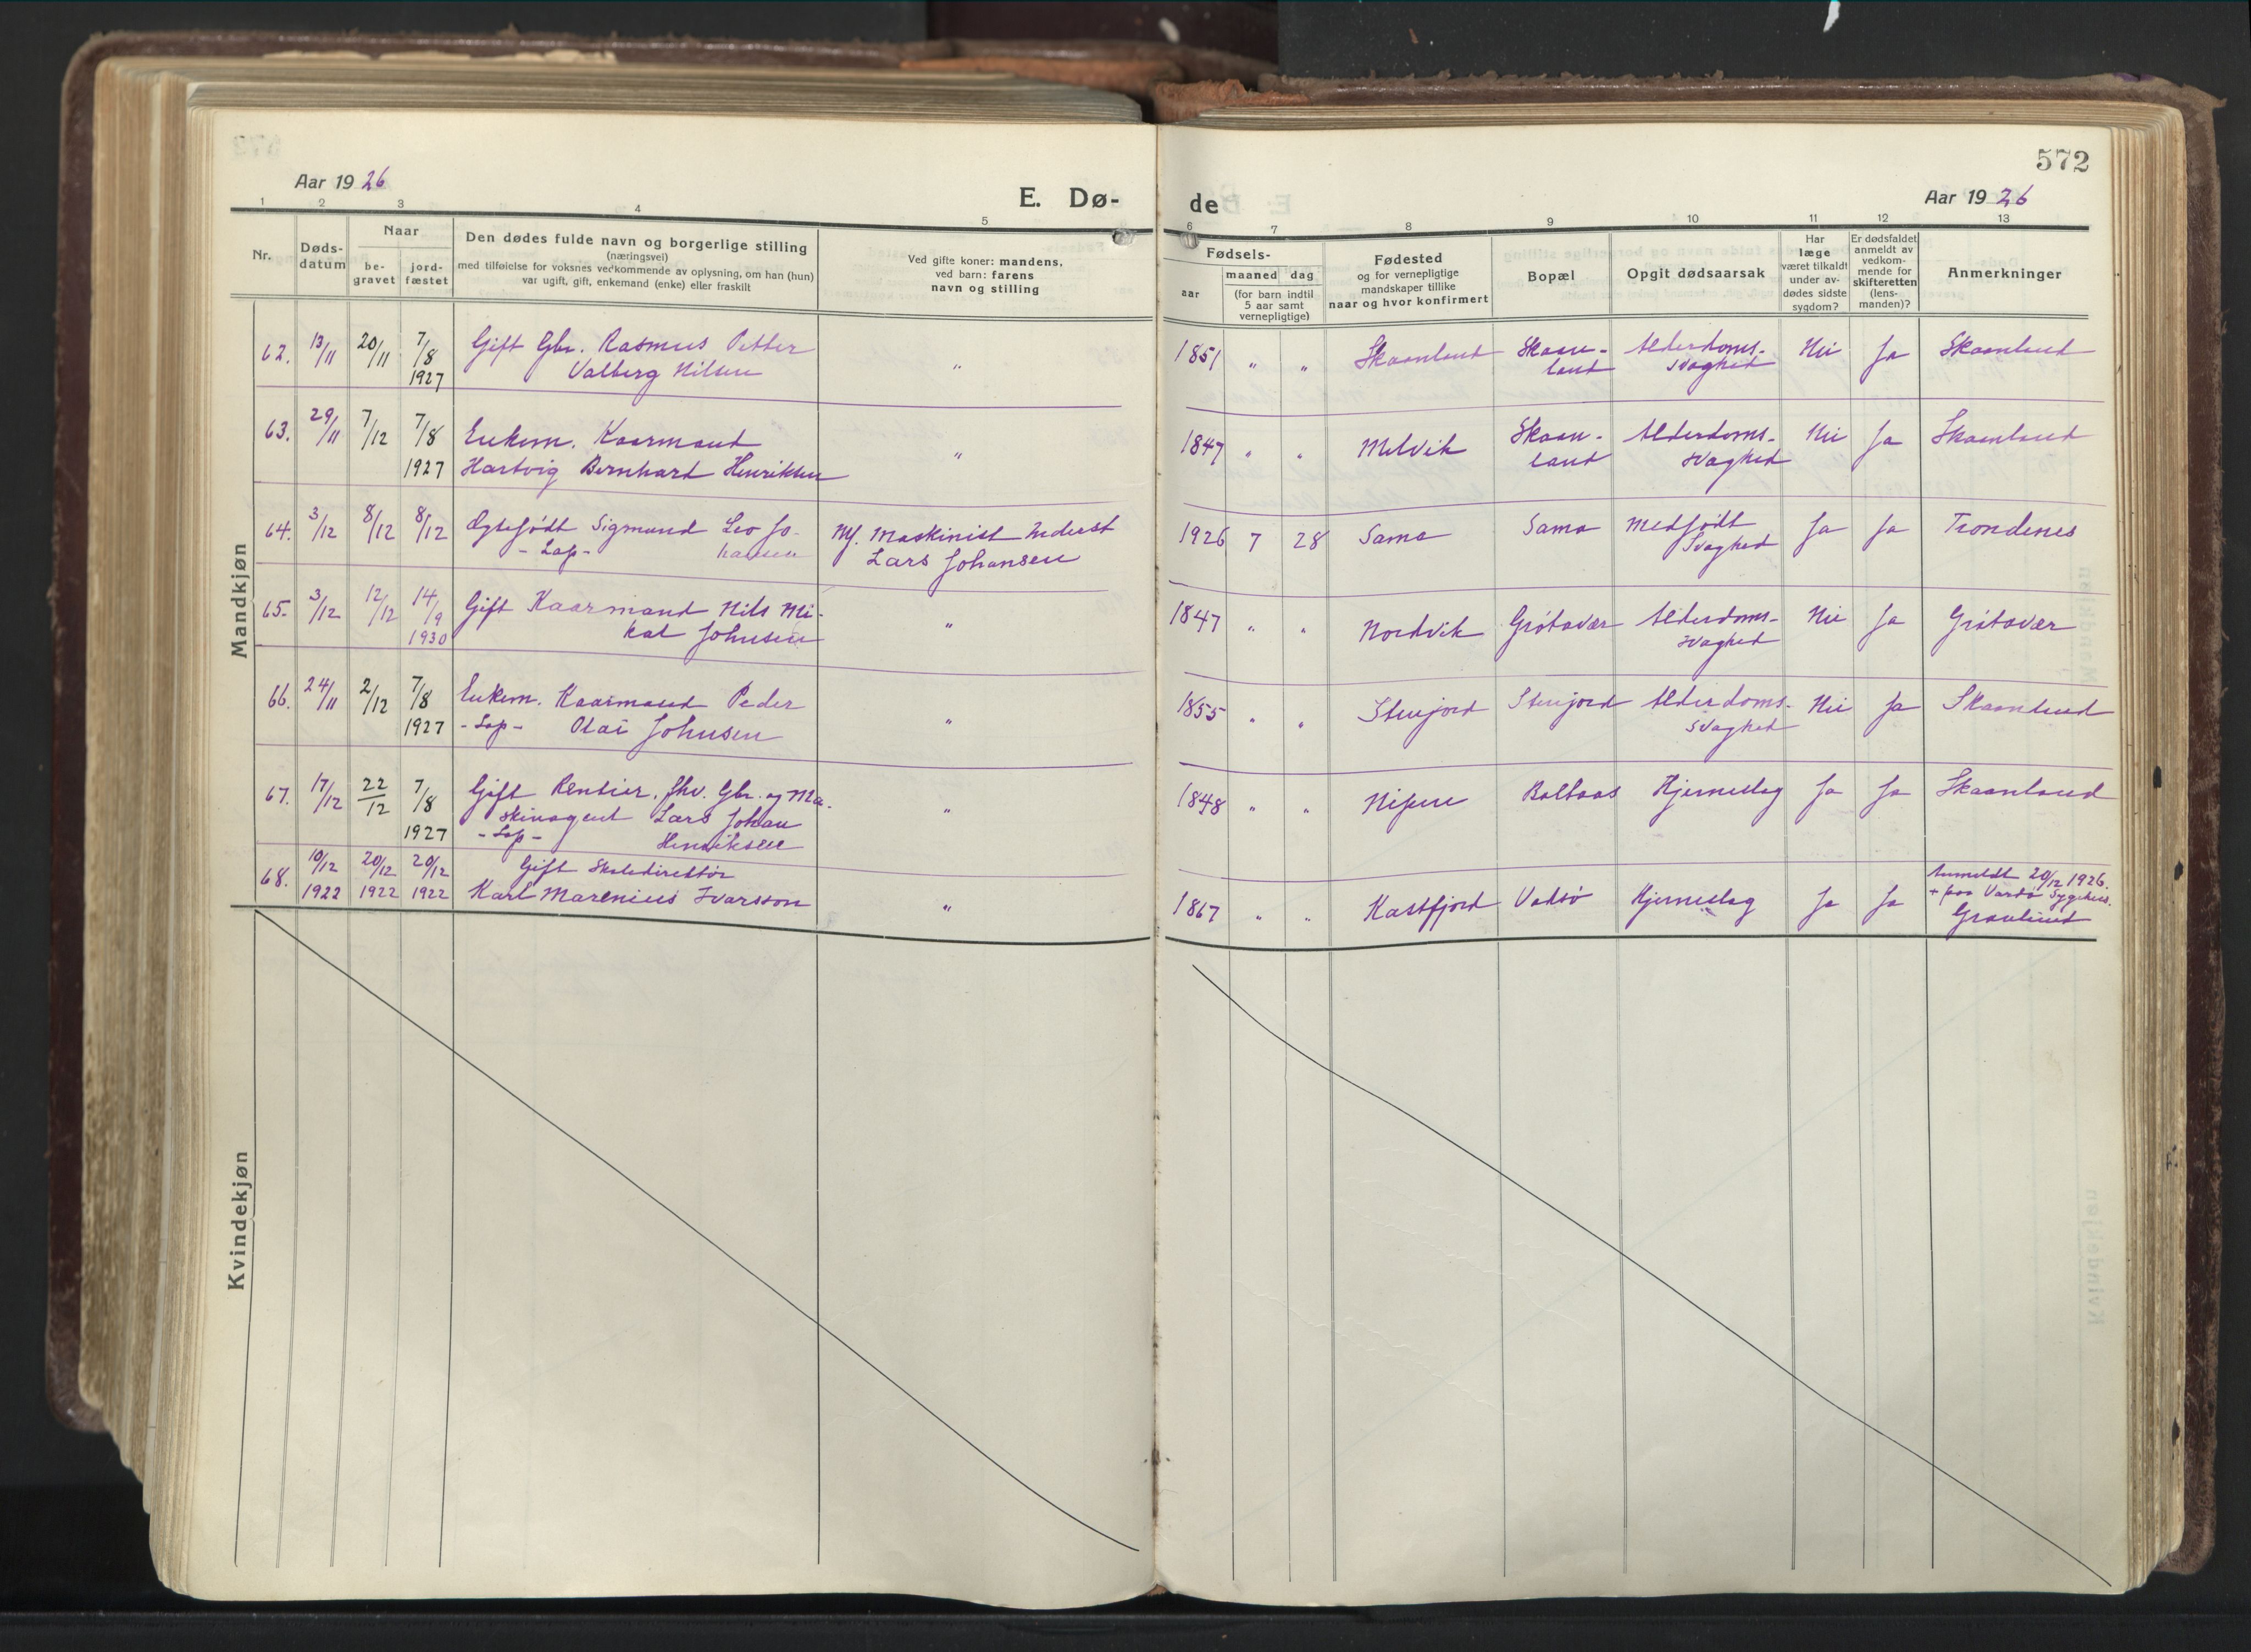 572
Aar 1926
E. Dø-
de
Aar 1926
1 2 3 4 5
6 7 8 9 10 11 12 13
Nr.
Døds-
datum
Naar
be-
gravet
jord-
fæstet
Den dødes fulde navn og borgerlige stilling
(næringsvei)
med tilføielse for voksnes vedkommende av oplysning, om han (hun)
var ugift, gift, enkemand (enke) eller fraskilt
Ved gifte koner: mandens,
ved barn: farens
navn og stilling
Fødsels-
aar
maaned dag
(for barn indtil
5 aar samt
vernepligtige)
Fødested
og for vernepligtige
mandskaper tillike
naar og hvor konfirmert
Bopæl
Opgit dødsaarsak
Har
læge
været tilkaldt
under av-
dødes sidste
sygdom?
Er dødsfaldet
anmeldt av
vedkom-
mende for
skifteretten
(lens-
manden)?
Anmerkninger
Mandkjøn
62. 13/11 20/11 7/8 Gift Gbr. Rasmus Petter
1927 Valberg Nilsen "
1851 " " Skaanland Skaan- Alderdoms- Nei Ja Skaanland
land svaghed
63. 29/11 7/12 7/8 Enkem. Kaarmand
1927 Hartvig Bernhart Henriksen "
1847 " " Melvik Skaan- Alderdoms- Nei Ja Skaanland
land svaghed
64. 3/12 8/12 8/12 Egtefødt Sigmund Leo Jo- Nf. Maskinist Inderst
- Lap - hansen Lars Johansen
1926 7 28 Sama Sama Medfødt Ja Ja Trondenes
Svaghed
65. 3/12 12/12 14/9 Gift Kaarmand Nils Mi-
1930 kal Johnsen "
1847 " " Nordvik Grøtavær Alderdoms- Nei Ja Grøtavær
svaghed
66. 24/11 2/12 7/8 Enkem. Kaarmand Peder
1927 - Lap - Olai Johnsen "
1855 " " Stenjord Stenjord Alderdoms- Nei Ja Skaanland
svaghed
67. 17/12 22/12 7/8 Gift Rentier, fhv. Gbr. og Ma-
skinagent Lars Johan
1927 - Lap - Henriksen "
1848 " " Nipen Boltaas Hjerneslag Ja Ja Skaanland
68. 10/12 20/12 20/12 Gift Skoledirektør
1922 1922 1922 Karl Marenius Ivarsson "
1867 " " Kastfjord Vadsø Hjerneslag Ja Ja
Anmeldt 20/12 1926.
+ paa Vardø Sygehus.
Kvindekjøn